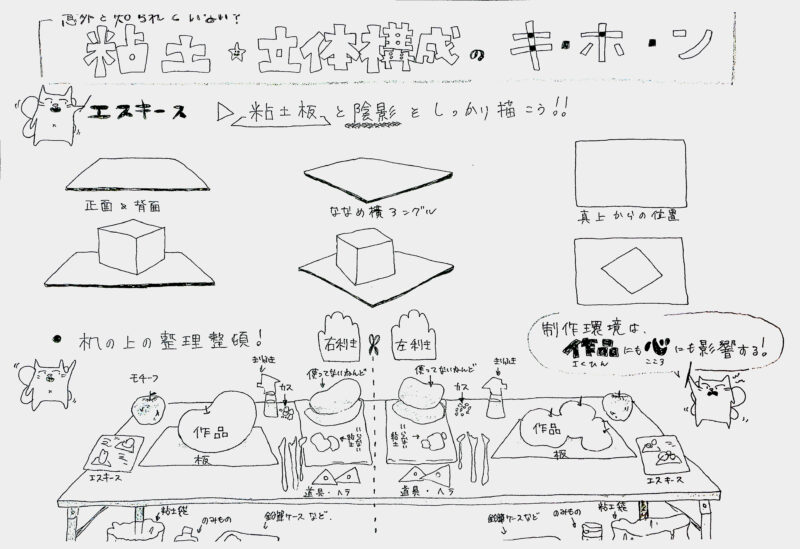 意外と知られていない?
粘土☆立体構成のキ・ホ・ン
エスキース ▷粘土板と陰影をしっかり描こう!!
正面&背面
ななめ横アングル
真上からの位置
●机の上の整理整頓!
右利き
左利き
制作環境は、
作品にも心にも影響する!
さくひん こころ
モチーフ
作品
板
エスキース
きりふき
カス
使ってないねんど
いらない粘土
道具・ヘラ
使ってないねんど
カス
きりふき
いらない粘土
道具・ヘラ
作品
板
エスキース
粘土袋
のみもの
鉛筆ケースなど.
鉛筆ケースなど
のみもの
粘土袋